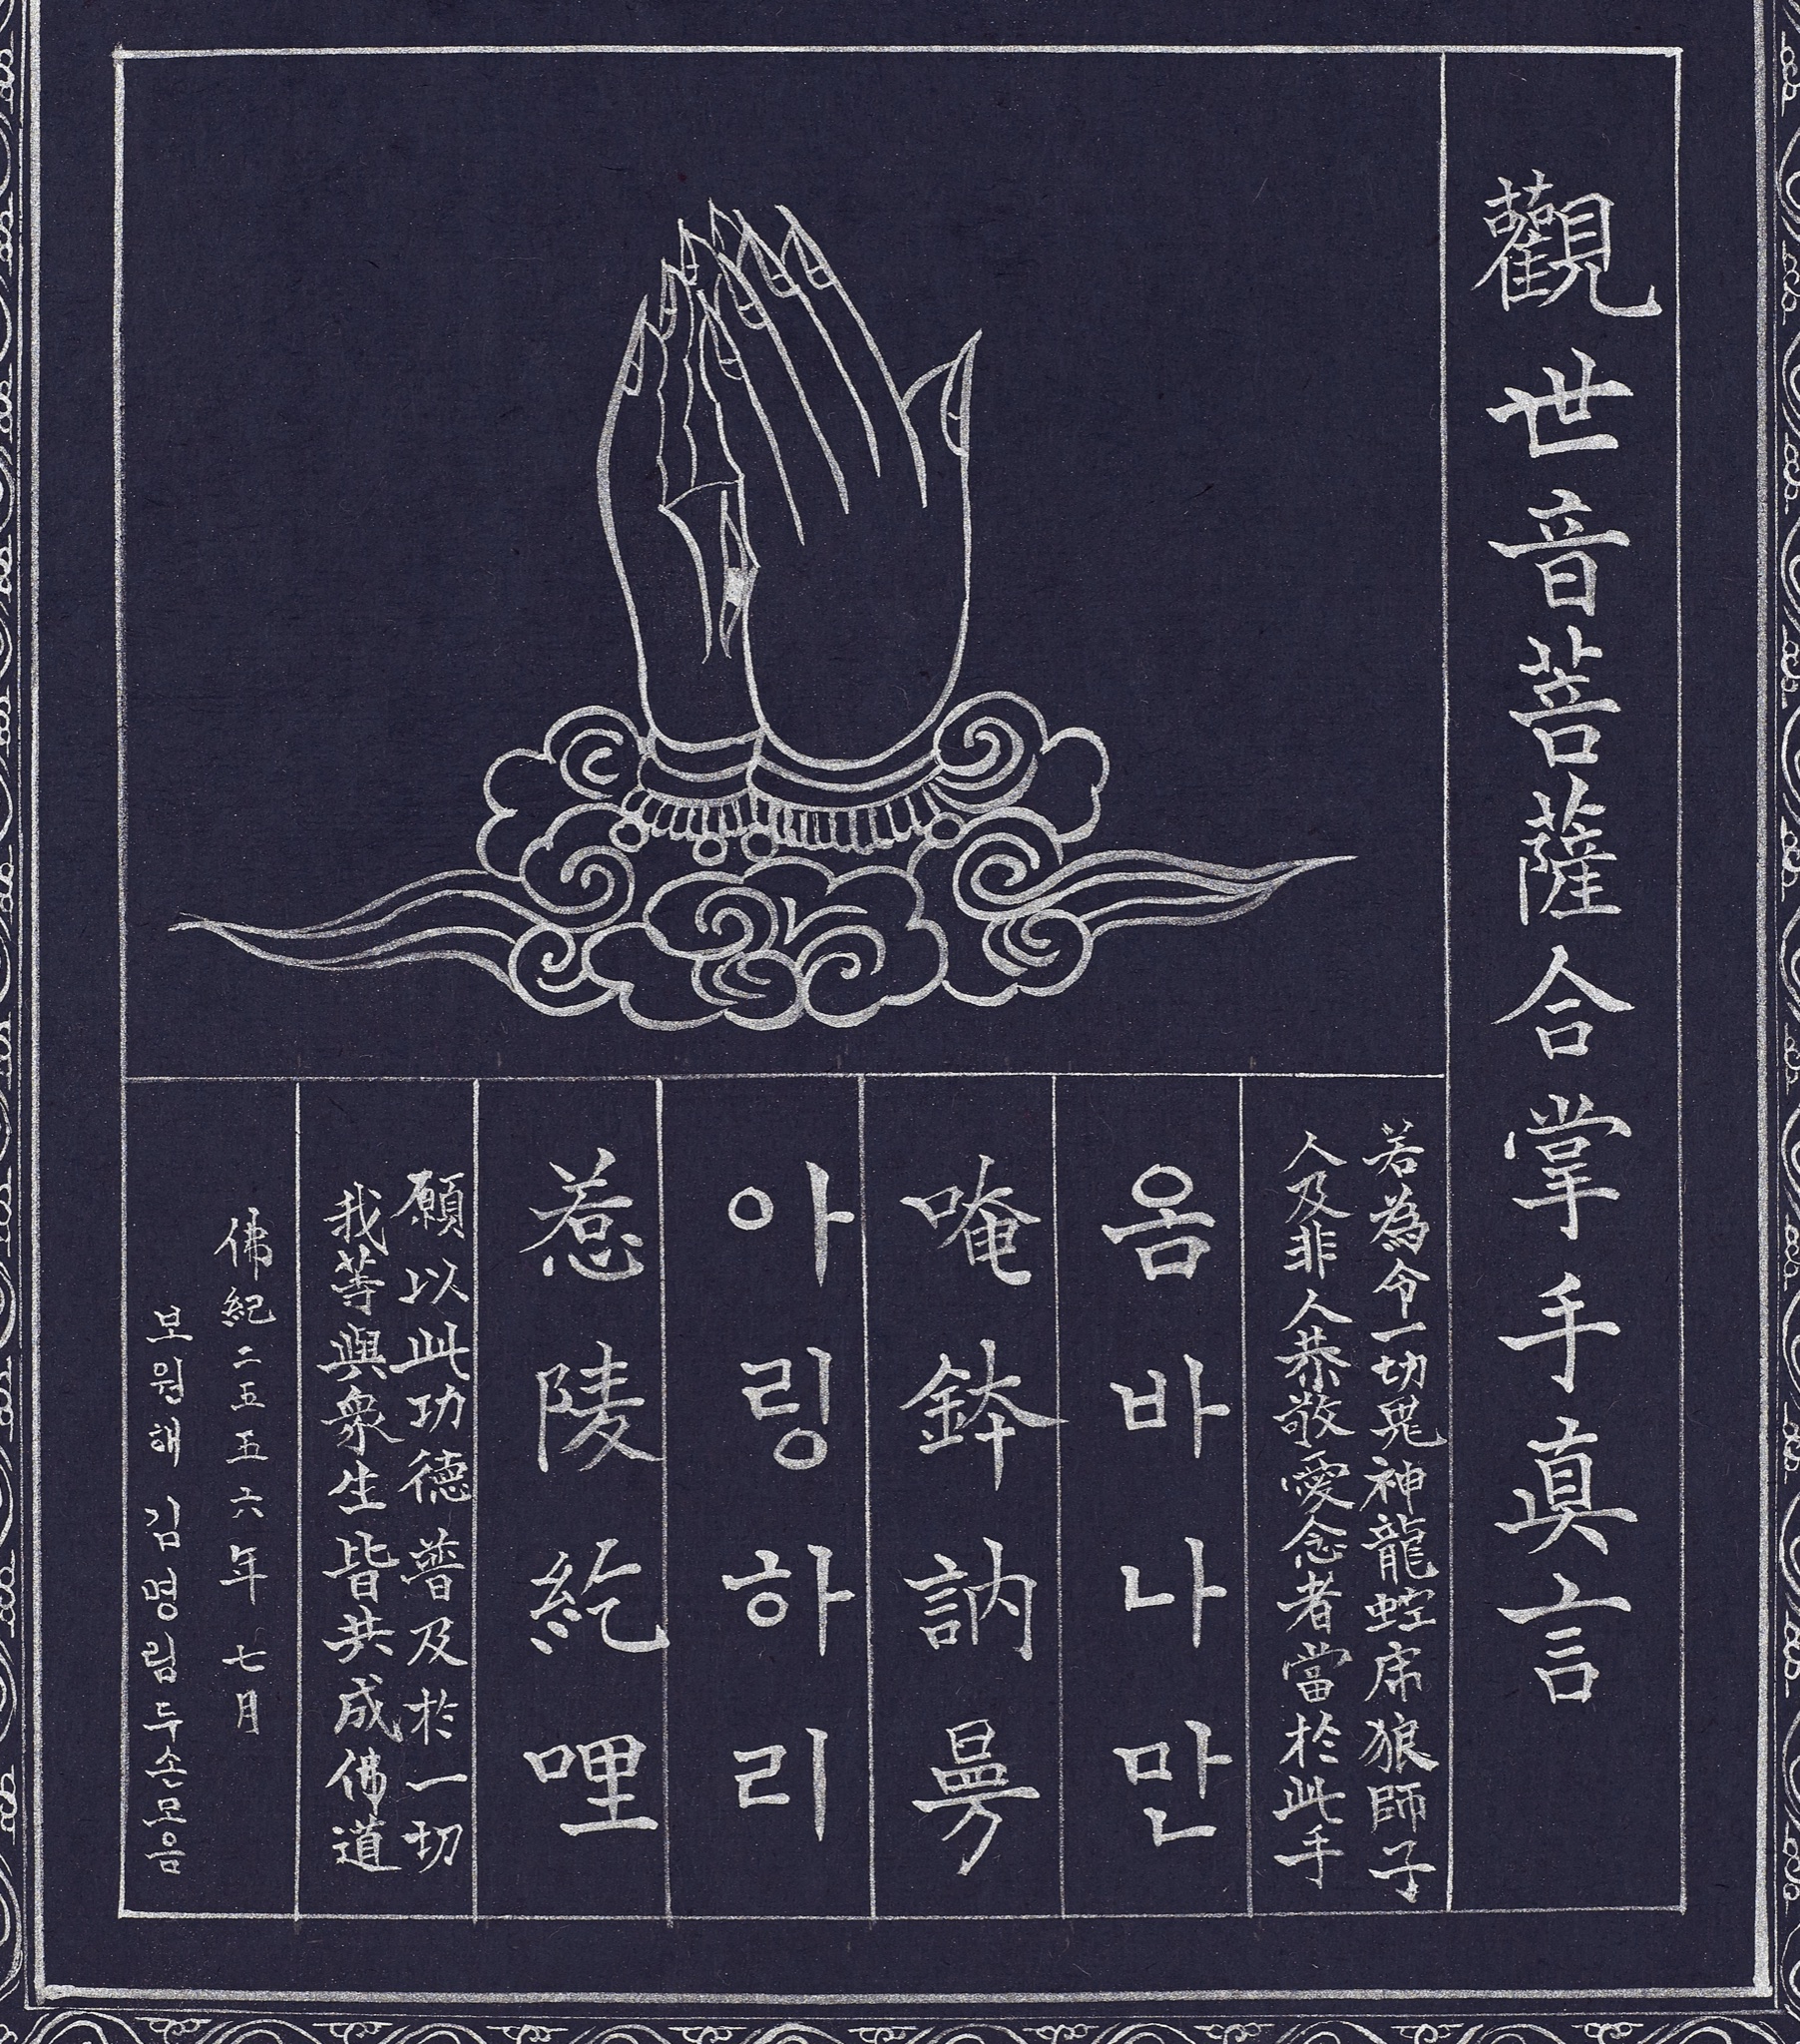 觀世音菩薩合掌手眞言
若為令一切鬼神龍蛇虎狼師子
人及非人恭敬愛念者當於此手
옴바나만
唵鉢訥曼
아링하리
惹陵紇哩
願以此功德普及於一切
我等與衆生皆共成佛道
佛紀二五五六年 七月
보원해 김명림두손모음